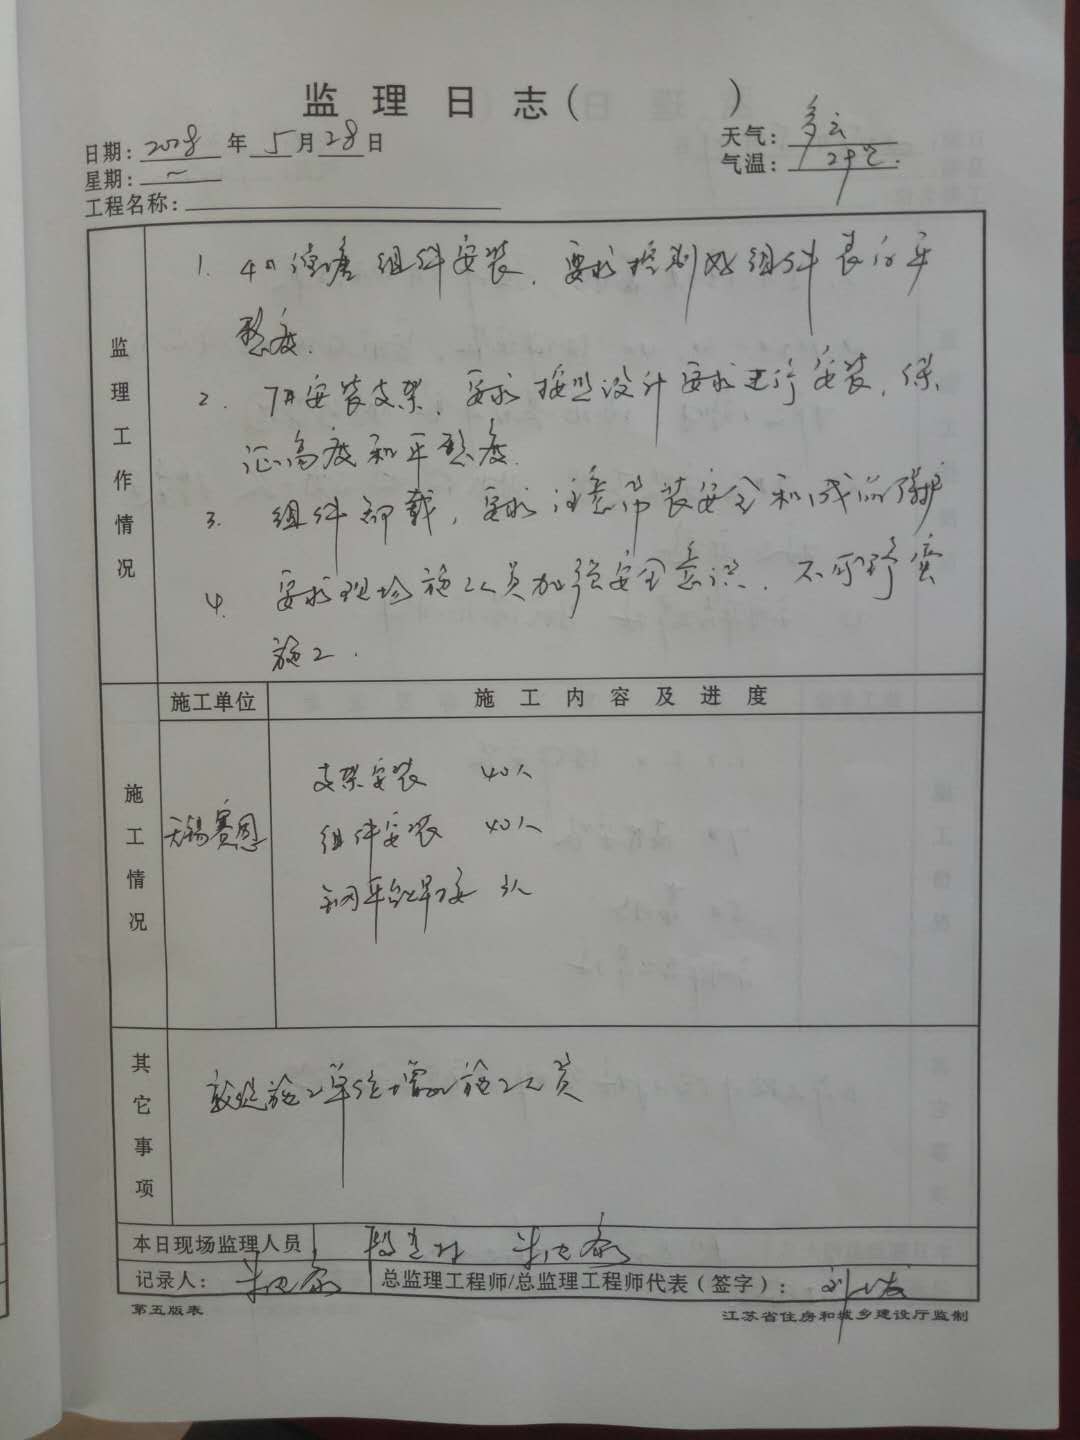 监理日志( )
日期: 2018 年 5 月 28 日
天气: 多云
星期: 一
气温: 29℃.
工程名称:
监理工作情况
1. 4# 组件安装, 要求控制好组件表面平
整度.
2. 7#安装支架, 要求按照设计要求进行安装, 保
证高度和平整度.
3. 组件卸载, 要求注意吊装安全和成品保护
4. 要求现场施工人员加强安全意识, 不可野蛮
施工.
施工情况
施工单位 施工内容及进度
无锡赛恩
支架安装 40人
组件安装 40人
钢平台焊接 3人
其它事项
敦促施工单位增加施工人员
本日现场监理人员
记录人: 总监理工程师/总监理工程师代表(签字):
第五版表 江苏省住房和城乡建设厅监制